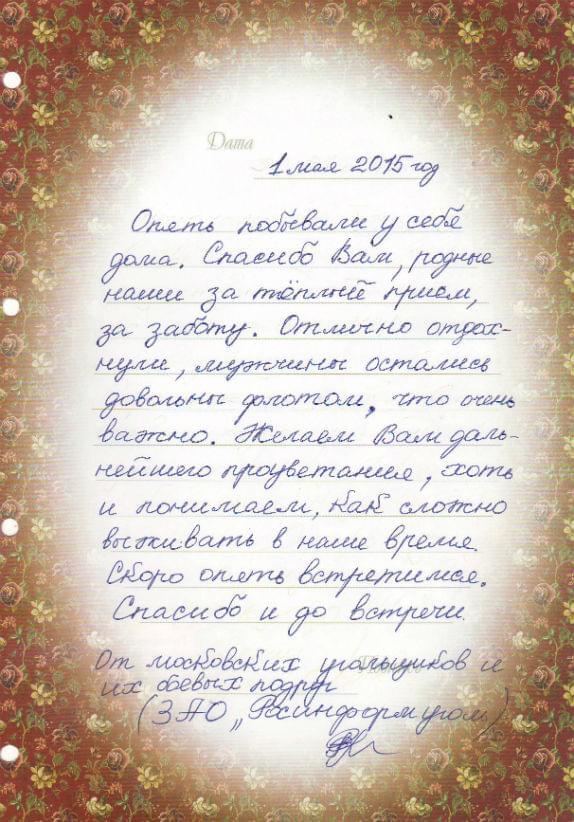 Дата
1 мая 2015 год
Опять побывали у себя
дома. Спасибо Вам, родные
наши за тёплый приём,
за заботу. Отлично отдох-
нули, мужчины остались
довольны флотом, что очень
важно. Желаем Вам даль-
нейшего процветания, хоть
и понимаем, как сложно
выживать в наше время.
Скоро опять встретимся.
Спасибо и до встречи.
От московских угольщиков и
их боевых подруг
(ЗАО „Росинформуголь")